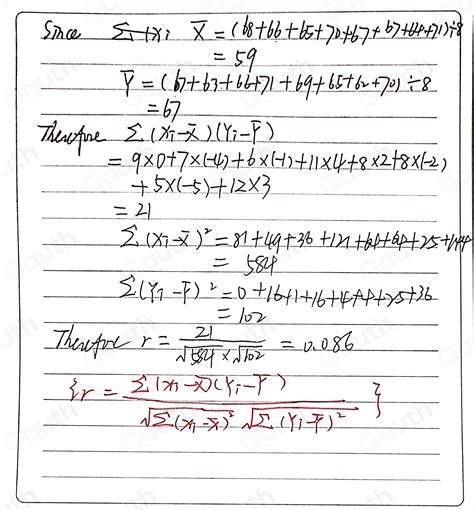 Since Σ(xi X̄ = (68+66+65+70+67+67+64+71)÷8
= 59
Ȳ = (67+63+66+71+69+65+62+70)÷8
= 67
Therefore Σ(xi-x̄)(Yi-Ȳ)
= 9×0+7×(-4)+6×(-1)+11×4+8×2+8×(-2)
+5×(-5)+12×3
= 21
Σ(xi-x̄)² = 81+49+36+121+64+64+25+144
= 584
Σ(Yi-Ȳ)² = 0+16+1+16+4+4+25+36
= 102
Therefore r = 21/√584×√102 = 0.086
{r = Σ(xi-x̄)(Yi-Ȳ)/√Σ(xi-x̄)² √Σ(Yi-Ȳ)² }